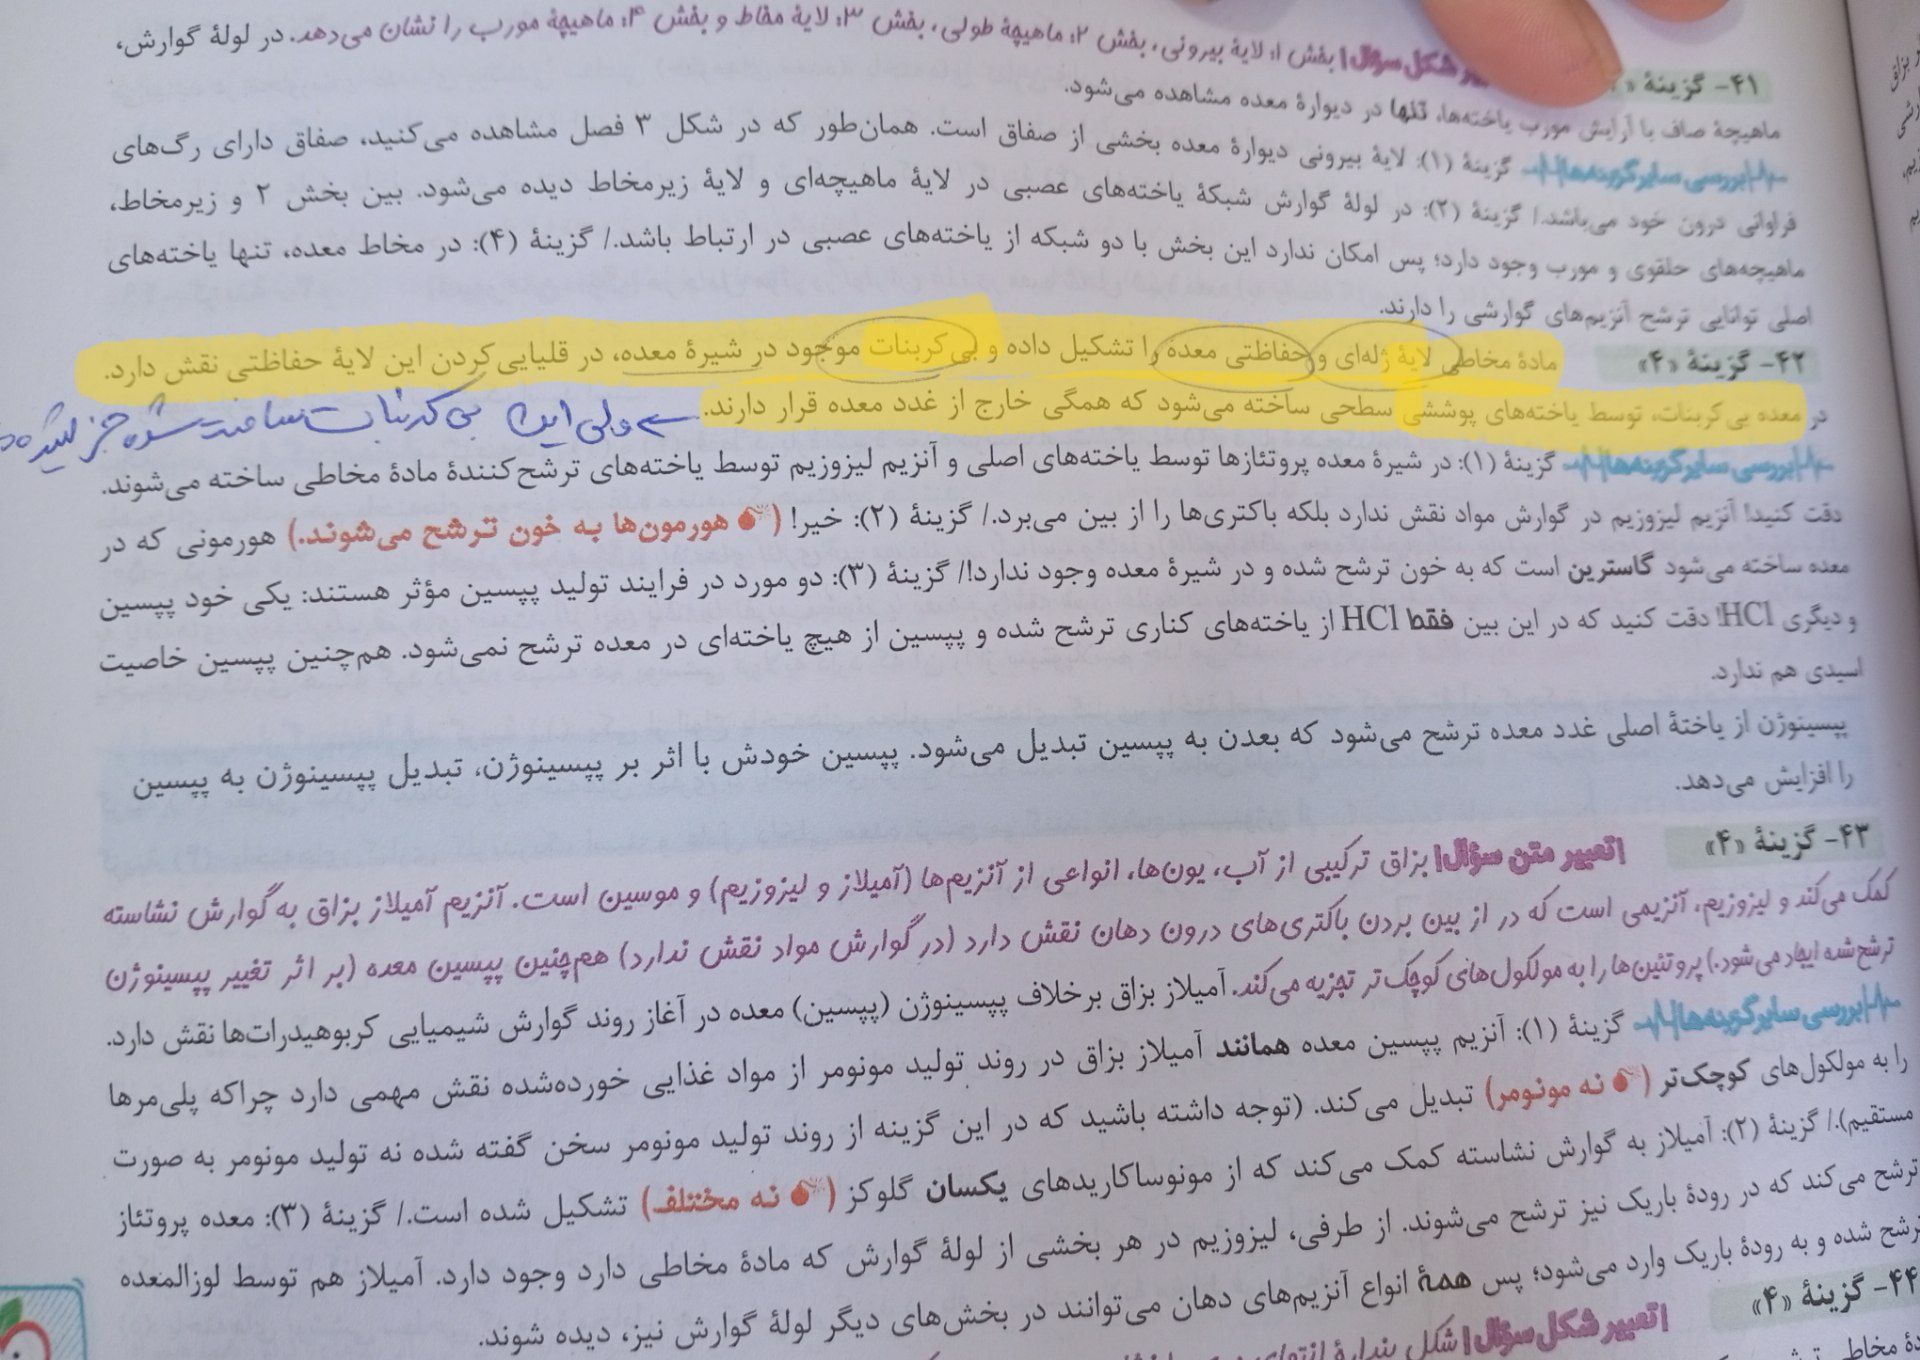 ۴۱- گزینهٔ « شکل سؤال| بخش ۱: لایهٔ بیرونی، بخش ۲: ماهیچهٔ طولی، بخش ۳: لایهٔ مخاط و بخش ۴: ماهیچهٔ مورب را نشان می‌دهد. در لولهٔ گوارش،
ماهیچهٔ صاف با آرایش مورب یاخته‌ها، تنها در دیوارهٔ معده مشاهده می‌شود.
بررسی سایر گزینه‌ها گزینهٔ (۱): لایهٔ بیرونی دیوارهٔ معده بخشی از صفاق است. همان‌طور که در شکل ۳ فصل مشاهده می‌کنید، صفاق دارای رگ‌های
فراوانی درون خود می‌باشد./ گزینهٔ (۲): در لولهٔ گوارش شبکهٔ یاخته‌های عصبی در لایهٔ ماهیچه‌ای و لایهٔ زیرمخاط دیده می‌شود. بین بخش ۲ و زیرمخاط،
ماهیچه‌های حلقوی و مورب وجود دارد؛ پس امکان ندارد این بخش با دو شبکه از یاخته‌های عصبی در ارتباط باشد./ گزینهٔ (۴): در مخاط معده، تنها یاخته‌های
اصلی توانایی ترشح آنزیم‌های گوارشی را دارند.
۴۲- گزینهٔ «۴» مادهٔ مخاطی لایهٔ ژله‌ای و حفاظتی معده را تشکیل داده و بی‌کربنات موجود در شیرهٔ معده، در قلیایی کردن این لایهٔ حفاظتی نقش دارد.
در معده بی‌کربنات، توسط یاخته‌های پوششی سطحی ساخته می‌شود که همگی خارج از غدد معده قرار دارند.
← ولی این بی کربنات ساخته شده جز شیره
بررسی سایر گزینه‌ها گزینهٔ (۱): در شیرهٔ معده پروتئازها توسط یاخته‌های اصلی و آنزیم لیزوزیم توسط یاخته‌های ترشح‌کنندهٔ مادهٔ مخاطی ساخته می‌شوند.
دقت کنید! آنزیم لیزوزیم در گوارش مواد نقش ندارد بلکه باکتری‌ها را از بین می‌برد./ گزینهٔ (۲): خیر! (هورمون‌ها به خون ترشح می‌شوند.) هورمونی که در
معده ساخته می‌شود گاسترین است که به خون ترشح شده و در شیرهٔ معده وجود ندارد!/ گزینهٔ (۳): دو مورد در فرایند تولید پپسین مؤثر هستند: یکی خود پپسین
و دیگری HCl! دقت کنید که در این بین فقط HCl از یاخته‌های کناری ترشح شده و پپسین از هیچ یاخته‌ای در معده ترشح نمی‌شود. هم‌چنین پپسین خاصیت
اسیدی هم ندارد.
پپسینوژن از یاختهٔ اصلی غدد معده ترشح می‌شود که بعدن به پپسین تبدیل می‌شود. پپسین خودش با اثر بر پپسینوژن، تبدیل پپسینوژن به پپسین
را افزایش می‌دهد.
۴۳- گزینهٔ «۴» |تعبیر متن سؤال| بزاق ترکیبی از آب، یون‌ها، انواعی از آنزیم‌ها (آمیلاز و لیزوزیم) و موسین است. آنزیم آمیلاز بزاق به گوارش نشاسته
کمک می‌کند و لیزوزیم، آنزیمی است که در از بین بردن باکتری‌های درون دهان نقش دارد (در گوارش مواد نقش ندارد) هم‌چنین پپسین معده (بر اثر تغییر پپسینوژن
ترشح شده ایجاد می‌شود.) پروتئین‌ها را به مولکول‌های کوچک‌تر تجزیه می‌کند. آمیلاز بزاق برخلاف پپسینوژن (پپسین) معده در آغاز روند گوارش شیمیایی کربوهیدرات‌ها نقش دارد.
بررسی سایر گزینه‌ها گزینهٔ (۱): آنزیم پپسین معده همانند آمیلاز بزاق در روند تولید مونومر از مواد غذایی خورده‌شده نقش مهمی دارد چراکه پلی‌مرها
را به مولکول‌های کوچک‌تر (نه مونومر) تبدیل می‌کند. (توجه داشته باشید که در این گزینه از روند تولید مونومر سخن گفته شده نه تولید مونومر به صورت
مستقیم)./ گزینهٔ (۲): آمیلاز به گوارش نشاسته کمک می‌کند که از مونوساکاریدهای یکسان گلوکز (نه مختلف) تشکیل شده است./ گزینهٔ (۳): معده پروتئاز
ترشح می‌کند که در رودهٔ باریک نیز ترشح می‌شوند. از طرفی، لیزوزیم در هر بخشی از لولهٔ گوارش که مادهٔ مخاطی دارد وجود دارد. آمیلاز هم توسط لوزالمعده
ترشح شده و به رودهٔ باریک وارد می‌شود؛ پس همهٔ انواع آنزیم‌های دهان می‌توانند در بخش‌های دیگر لولهٔ گوارش نیز، دیده شوند.
۴۴- گزینهٔ «۴» |تعبیر شکل سؤال|